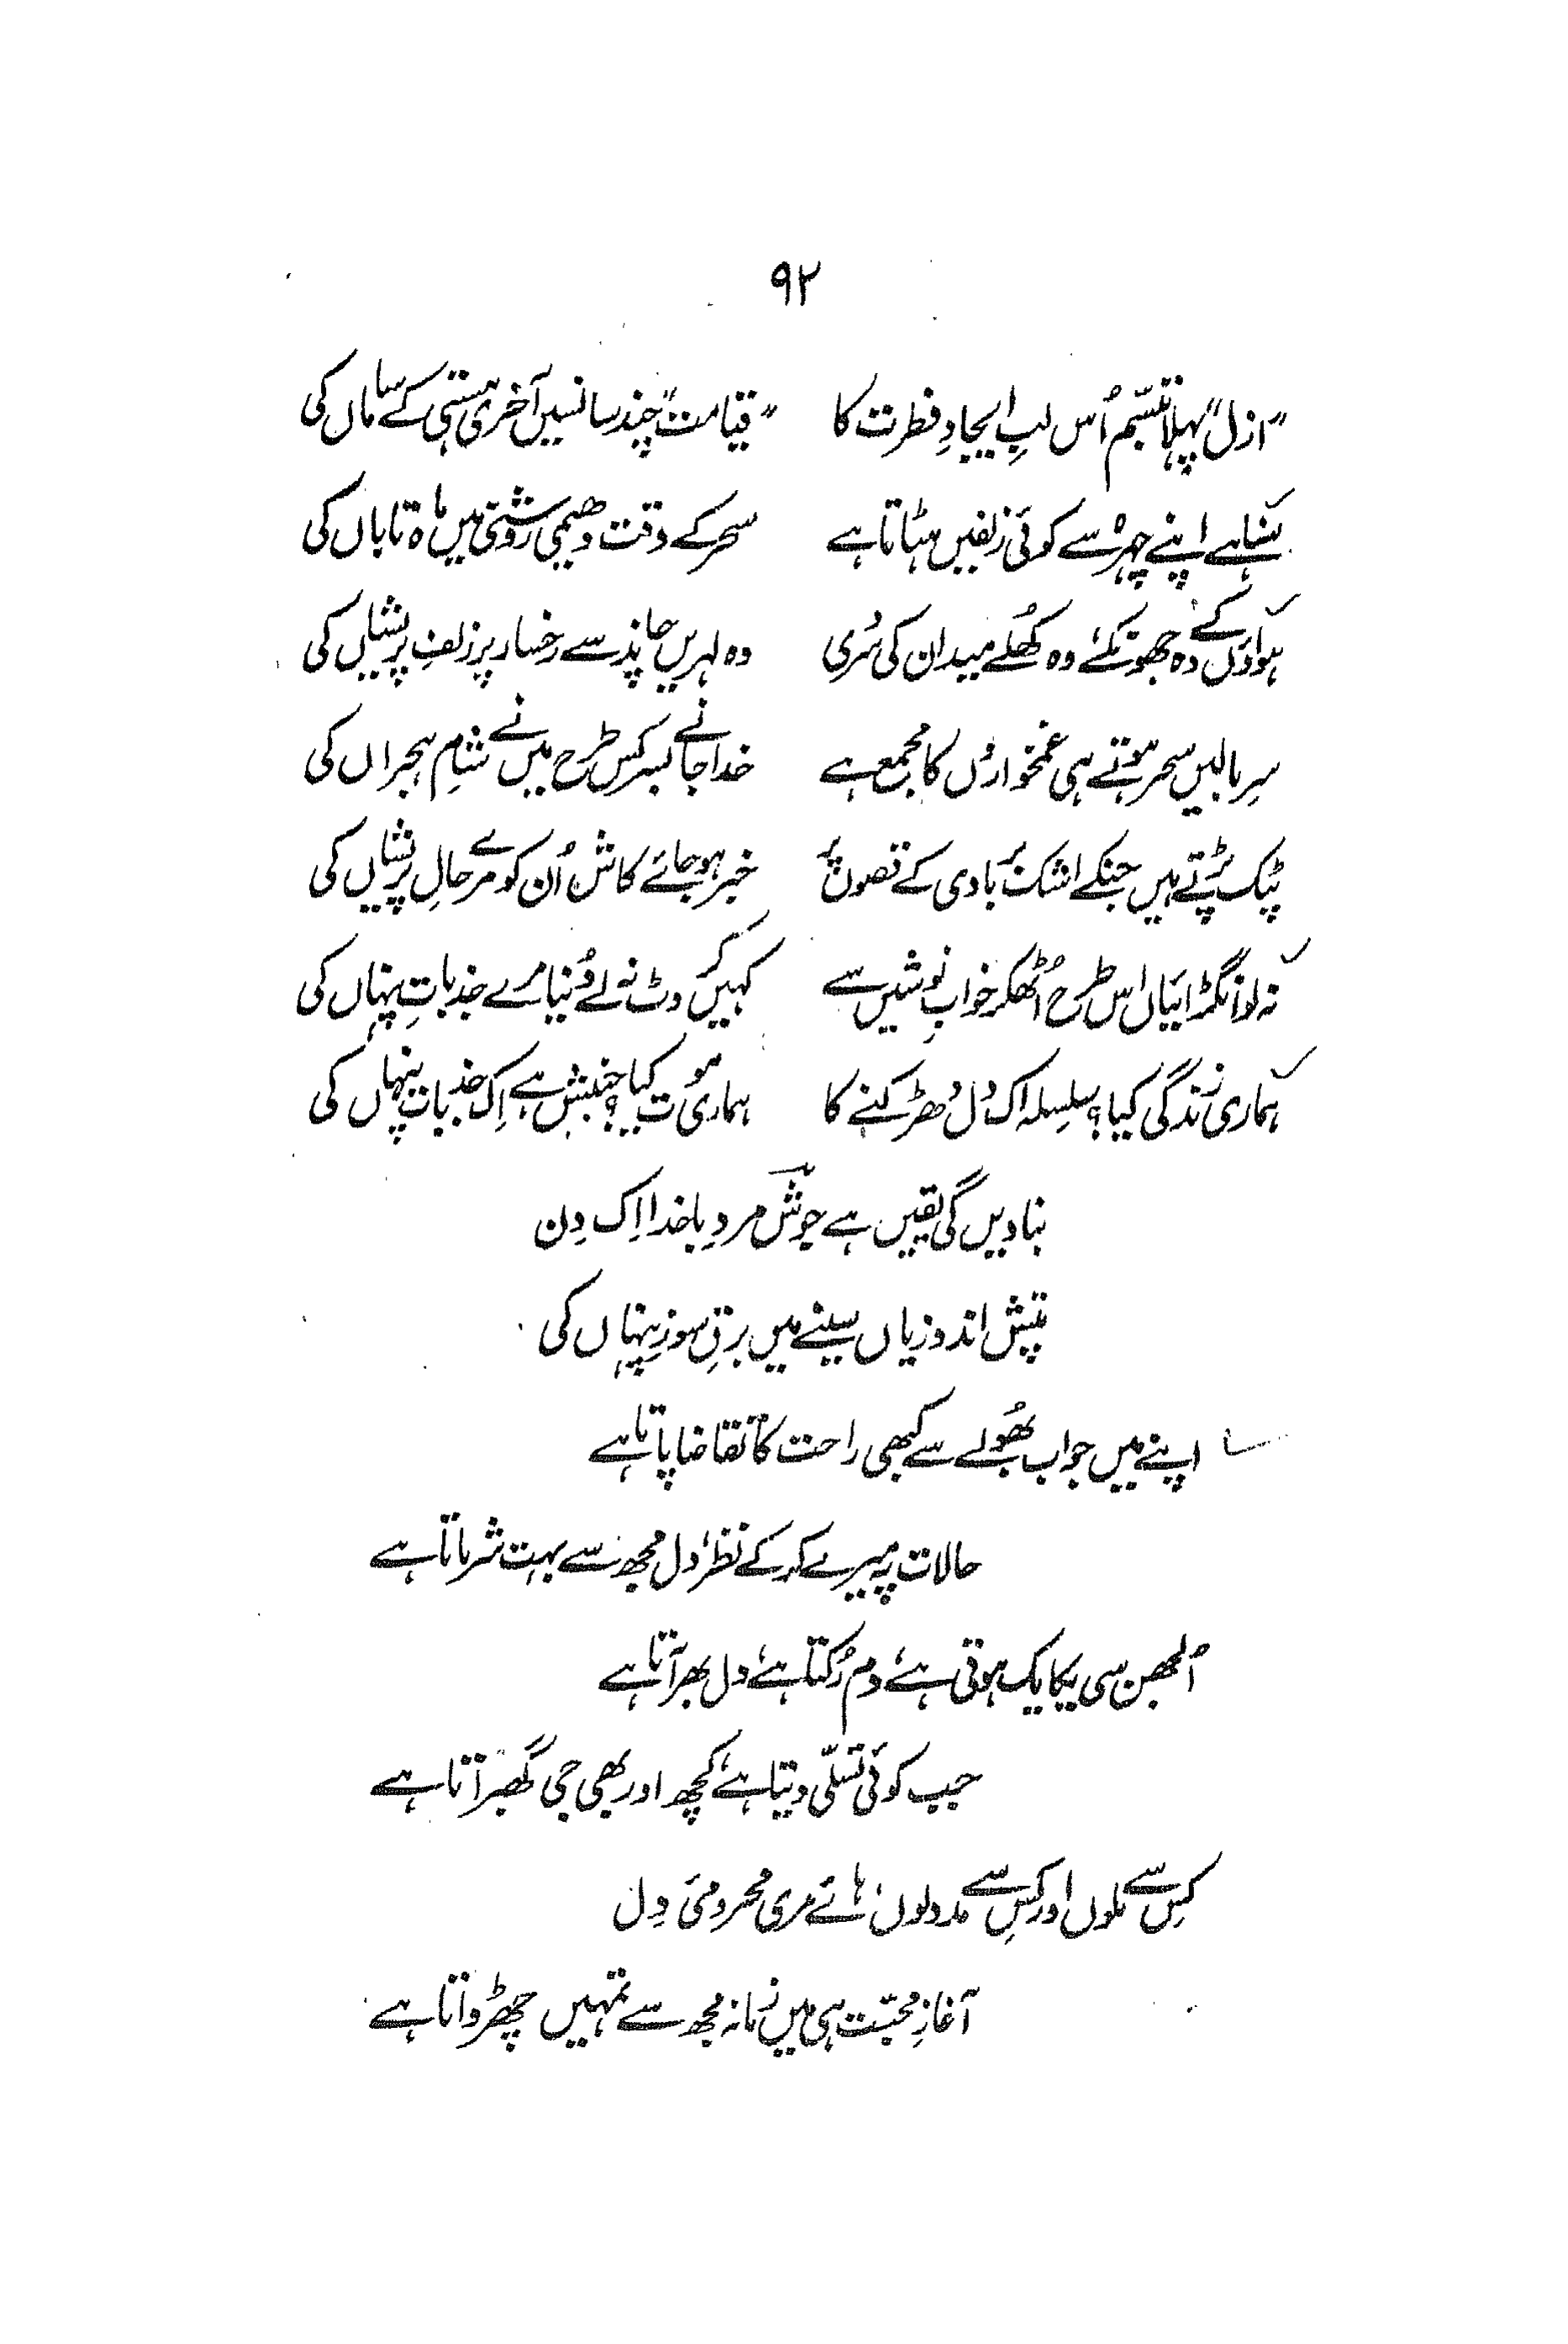 ۹۲
"ازل" پہلا تبسّم اُس لبِ ایجادِ فطرت کا "قیامت" چند سانسیں آخری ہستی کے ساماں کی
سُنا ہے اپنے چہرہ سے کوئی زلفیں ہٹاتا ہے سحر کے وقت دھیمی روشنی میں ماہ تاباں کی
ہواؤں کے وہ جھونکے، وہ کھُلے میدان کی سُری وہ لہریں چاند سے رخسار پر زلفِ پریشاں کی
سرِ بالیں سحر ہوتے ہی غمخواروں کا مجمع ہے خدا جانے بسر کس طرح میں نے شامِ ہجراں کی
ٹپک پڑتے ہیں جنکے اشک بربادی کے قصوں پر خبر ہو جائے کاش اُن کو مرے حالِ پریشاں کی
نہ لو انگڑائیاں اس طرح اُٹھکر خوابِ نوشیں سے کہیں کروٹ نہ لے دُنیا مرے جذباتِ پنہاں کی
ہماری زندگی کیا؟ سلسلہ اک دل دھڑکنے کا ہماری موت کیا؟ جنبش ہے اِک جذباتِ پنہاں کی
بنا دیں گی یقیں ہے جوشؔ مردِ باخدا اِک دِن
تپش اندوزیاں سینے میں برقِ سوزِ پنہاں کی
اپنے میں جواب بھُولے سے کبھی راحت کا تقاضا پاتا ہے
حالات پہ میرے کر کے نظر، دل مجھ سے بہت شرماتا ہے
اُلجھن سی یکایک ہوتی ہے، دم رُکتا ہے، دل بھر آتا ہے
جب کوئی تسلّی دیتا ہے، کچھ اور بھی جی گھبراتا ہے
کِس سے ملوں اور کِس سے مدد لوں، ہائے مری محرومئی دِل
آغازِ محبّت ہی میں زمانہ مجھ سے تمہیں چھڑواتا ہے